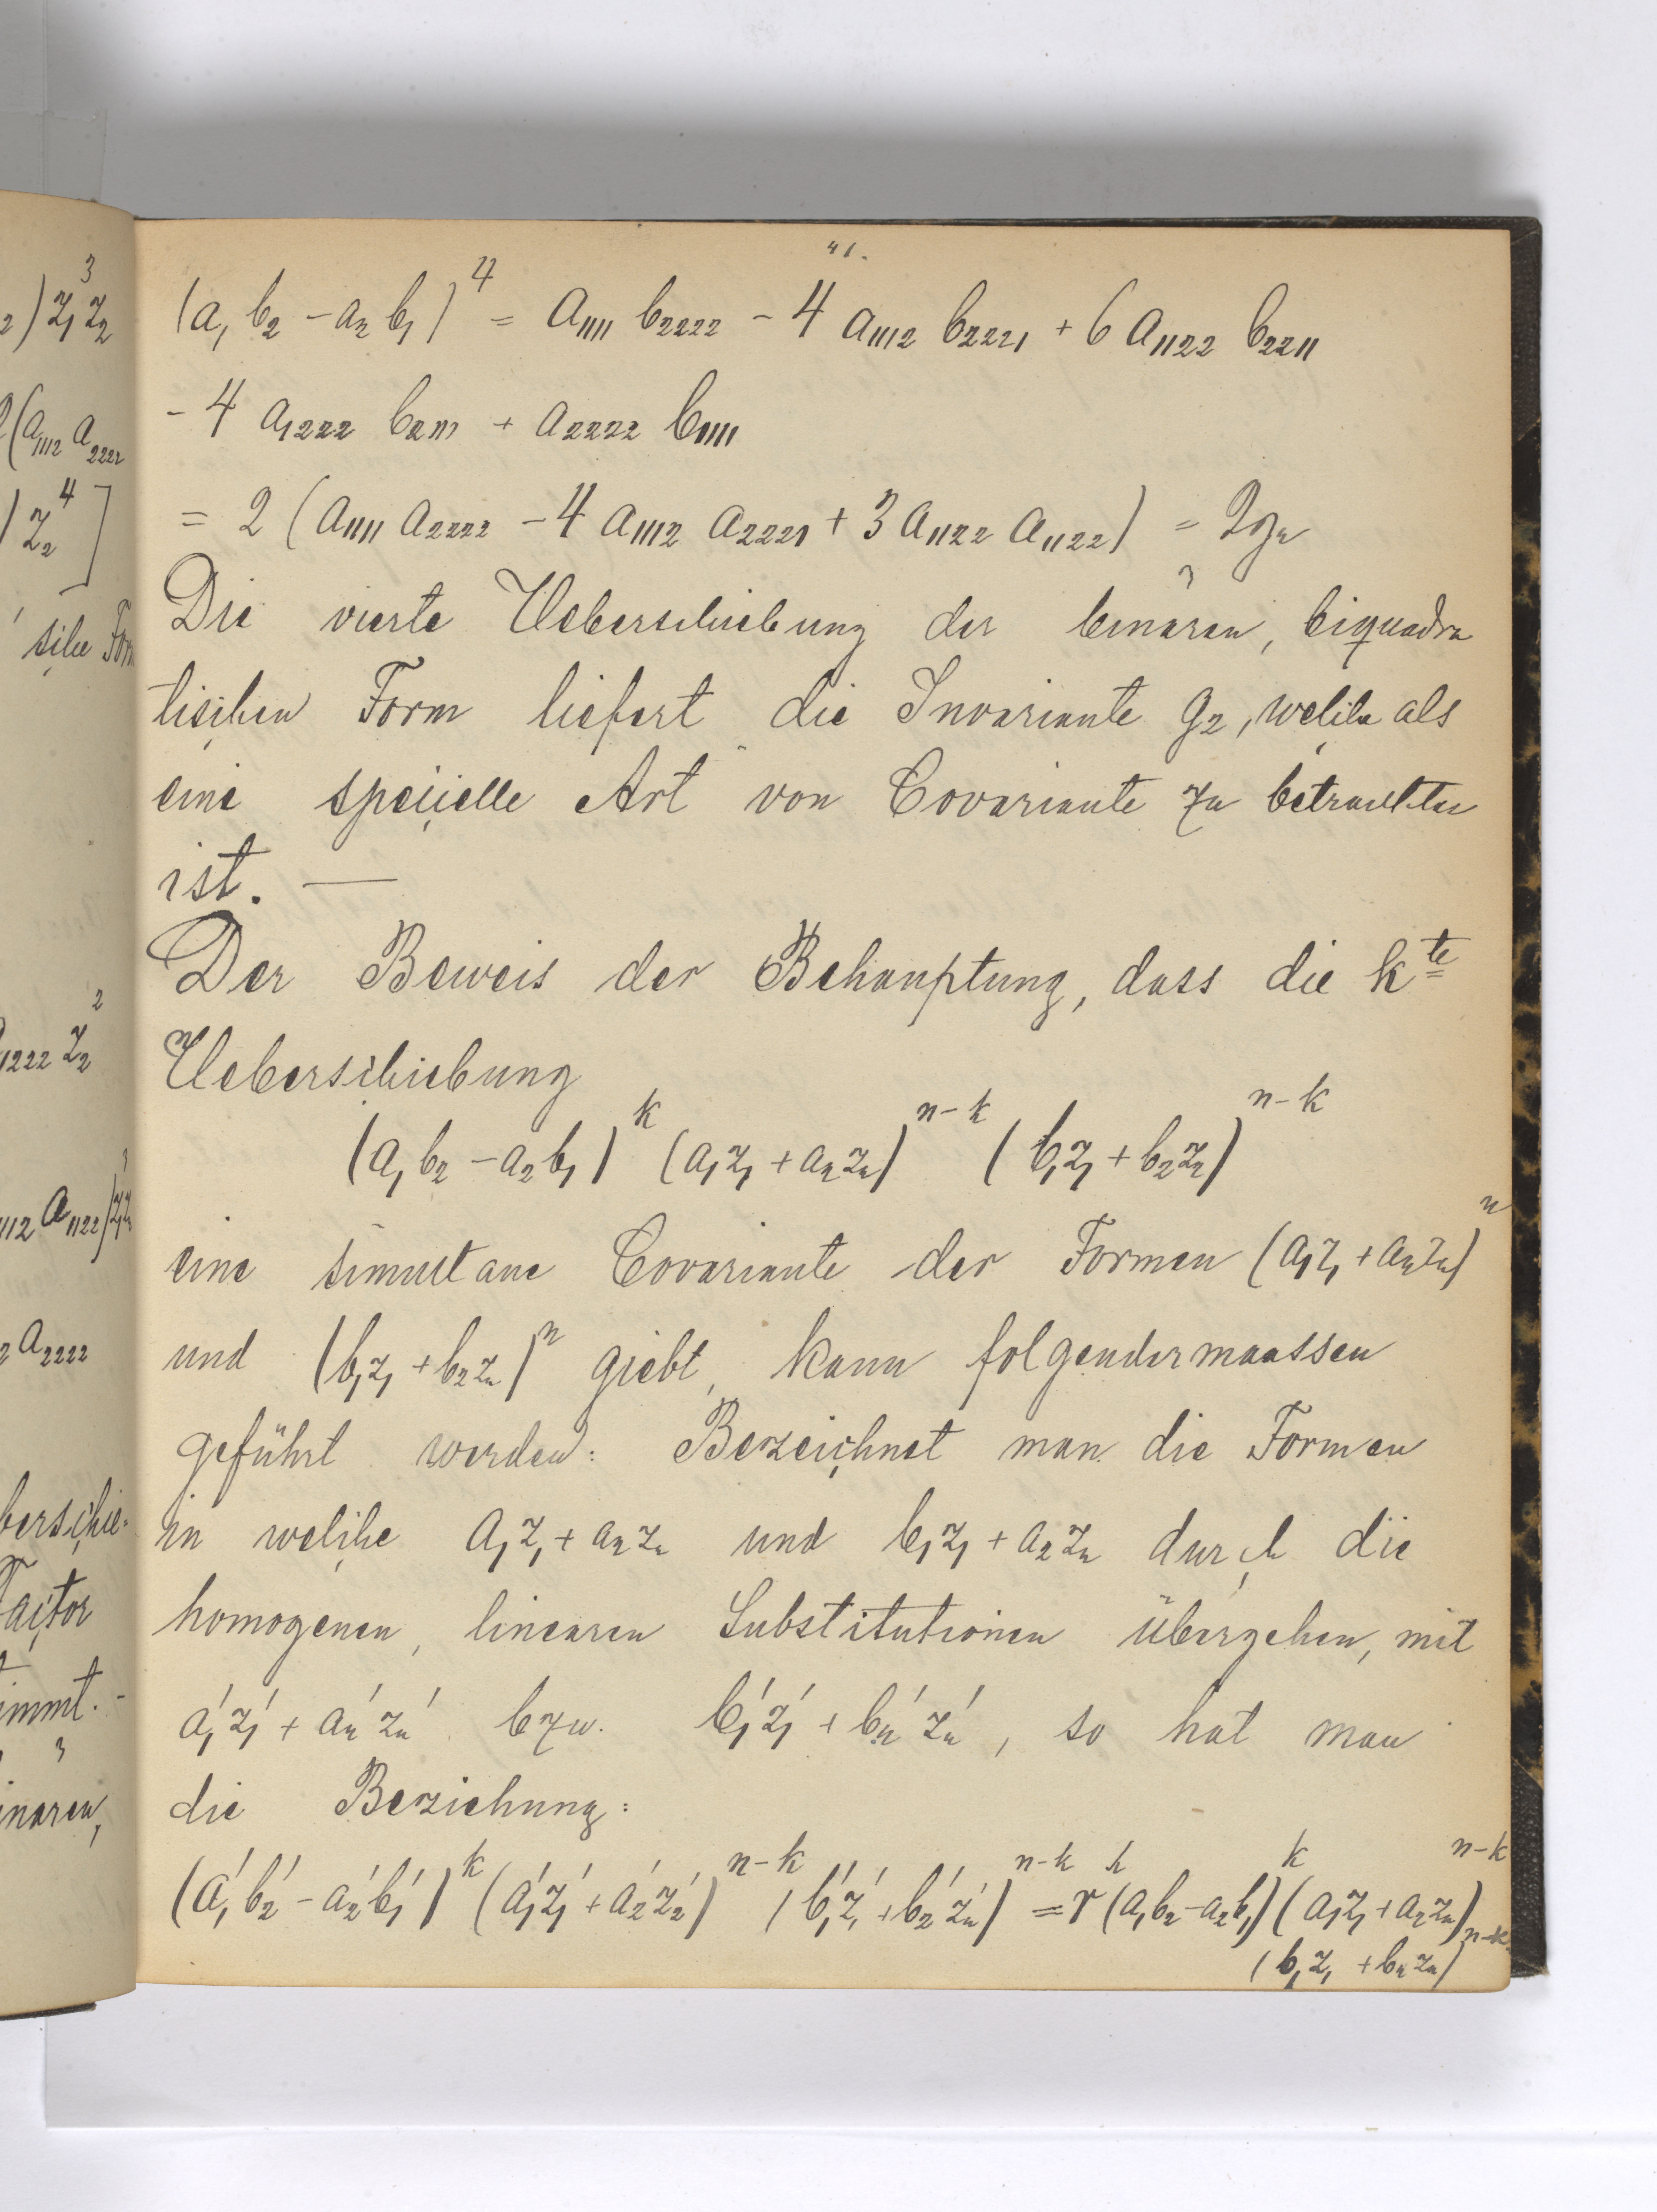 3
2) z₁ z₂
2(a₁₁₁₂ a₂₂₂₂
) z₂⁴ ]
sche Form
a₁₂₂₂ z₂²
a₁₁₁₂ a₁₁₂₂)
a₂₂₂₂
berschie-
Factor
immt. -
inären,
41.
(a₁ b₂ - a₂ b₁)⁴ = a₁₁₁₁ b₂₂₂₂ - 4 a₁₁₁₂ b₂₂₂₁ + 6 a₁₁₂₂ b₂₂₁₁
- 4 a₁₂₂₂ b₂₁₁₁ + a₂₂₂₂ b₁₁₁₁
= 2 (a₁₁₁₁ a₂₂₂₂ - 4 a₁₁₁₂ a₂₂₂₁ + 3 a₁₁₂₂ a₁₁₂₂) = 2g₂
Die vierte Ueberschiebung der binären, biquadra
tischen Form liefert die Invariante g₂, welche als
eine specielle Art von Covariante zu betrachten
ist. —
Der Beweis der Behauptung, dass die kte
Ueberschiebung
(a₁ b₂ - a₂ b₁)ᵏ (a₁z₁ + a₂z₂)ⁿ⁻ᵏ (b₁z₁ + b₂z₂)ⁿ⁻ᵏ
eine simultane Covariante der Formen (a₁z₁ + a₂z₂)ⁿ
und (b₁z₁ + b₂z₂)ⁿ giebt, kann folgendermaassen
geführt werden: Bezeichnet man die Formen
in welche a₁z₁ + a₂z₂ und b₁z₁ + a₂z₂ durch die
homogenen, linearen Substitutionen übergehen, mit
a₁'z₁' + a₂'z₂' bzw. b₁'z₁' + b₂'z₂', so hat man
die Beziehung:
(a₁'b₂' - a₂'b₁')ᵏ (a₁'z₁' + a₂'z₂')ⁿ⁻ᵏ (b₁'z₁' + b₂'z₂')ⁿ⁻ᵏ = rᵏ (a₁b₂ - a₂b₁)ᵏ (a₁z₁ + a₂z₂)ⁿ⁻ᵏ
(b₁z₁ + b₂z₂)ⁿ⁻ᵏ